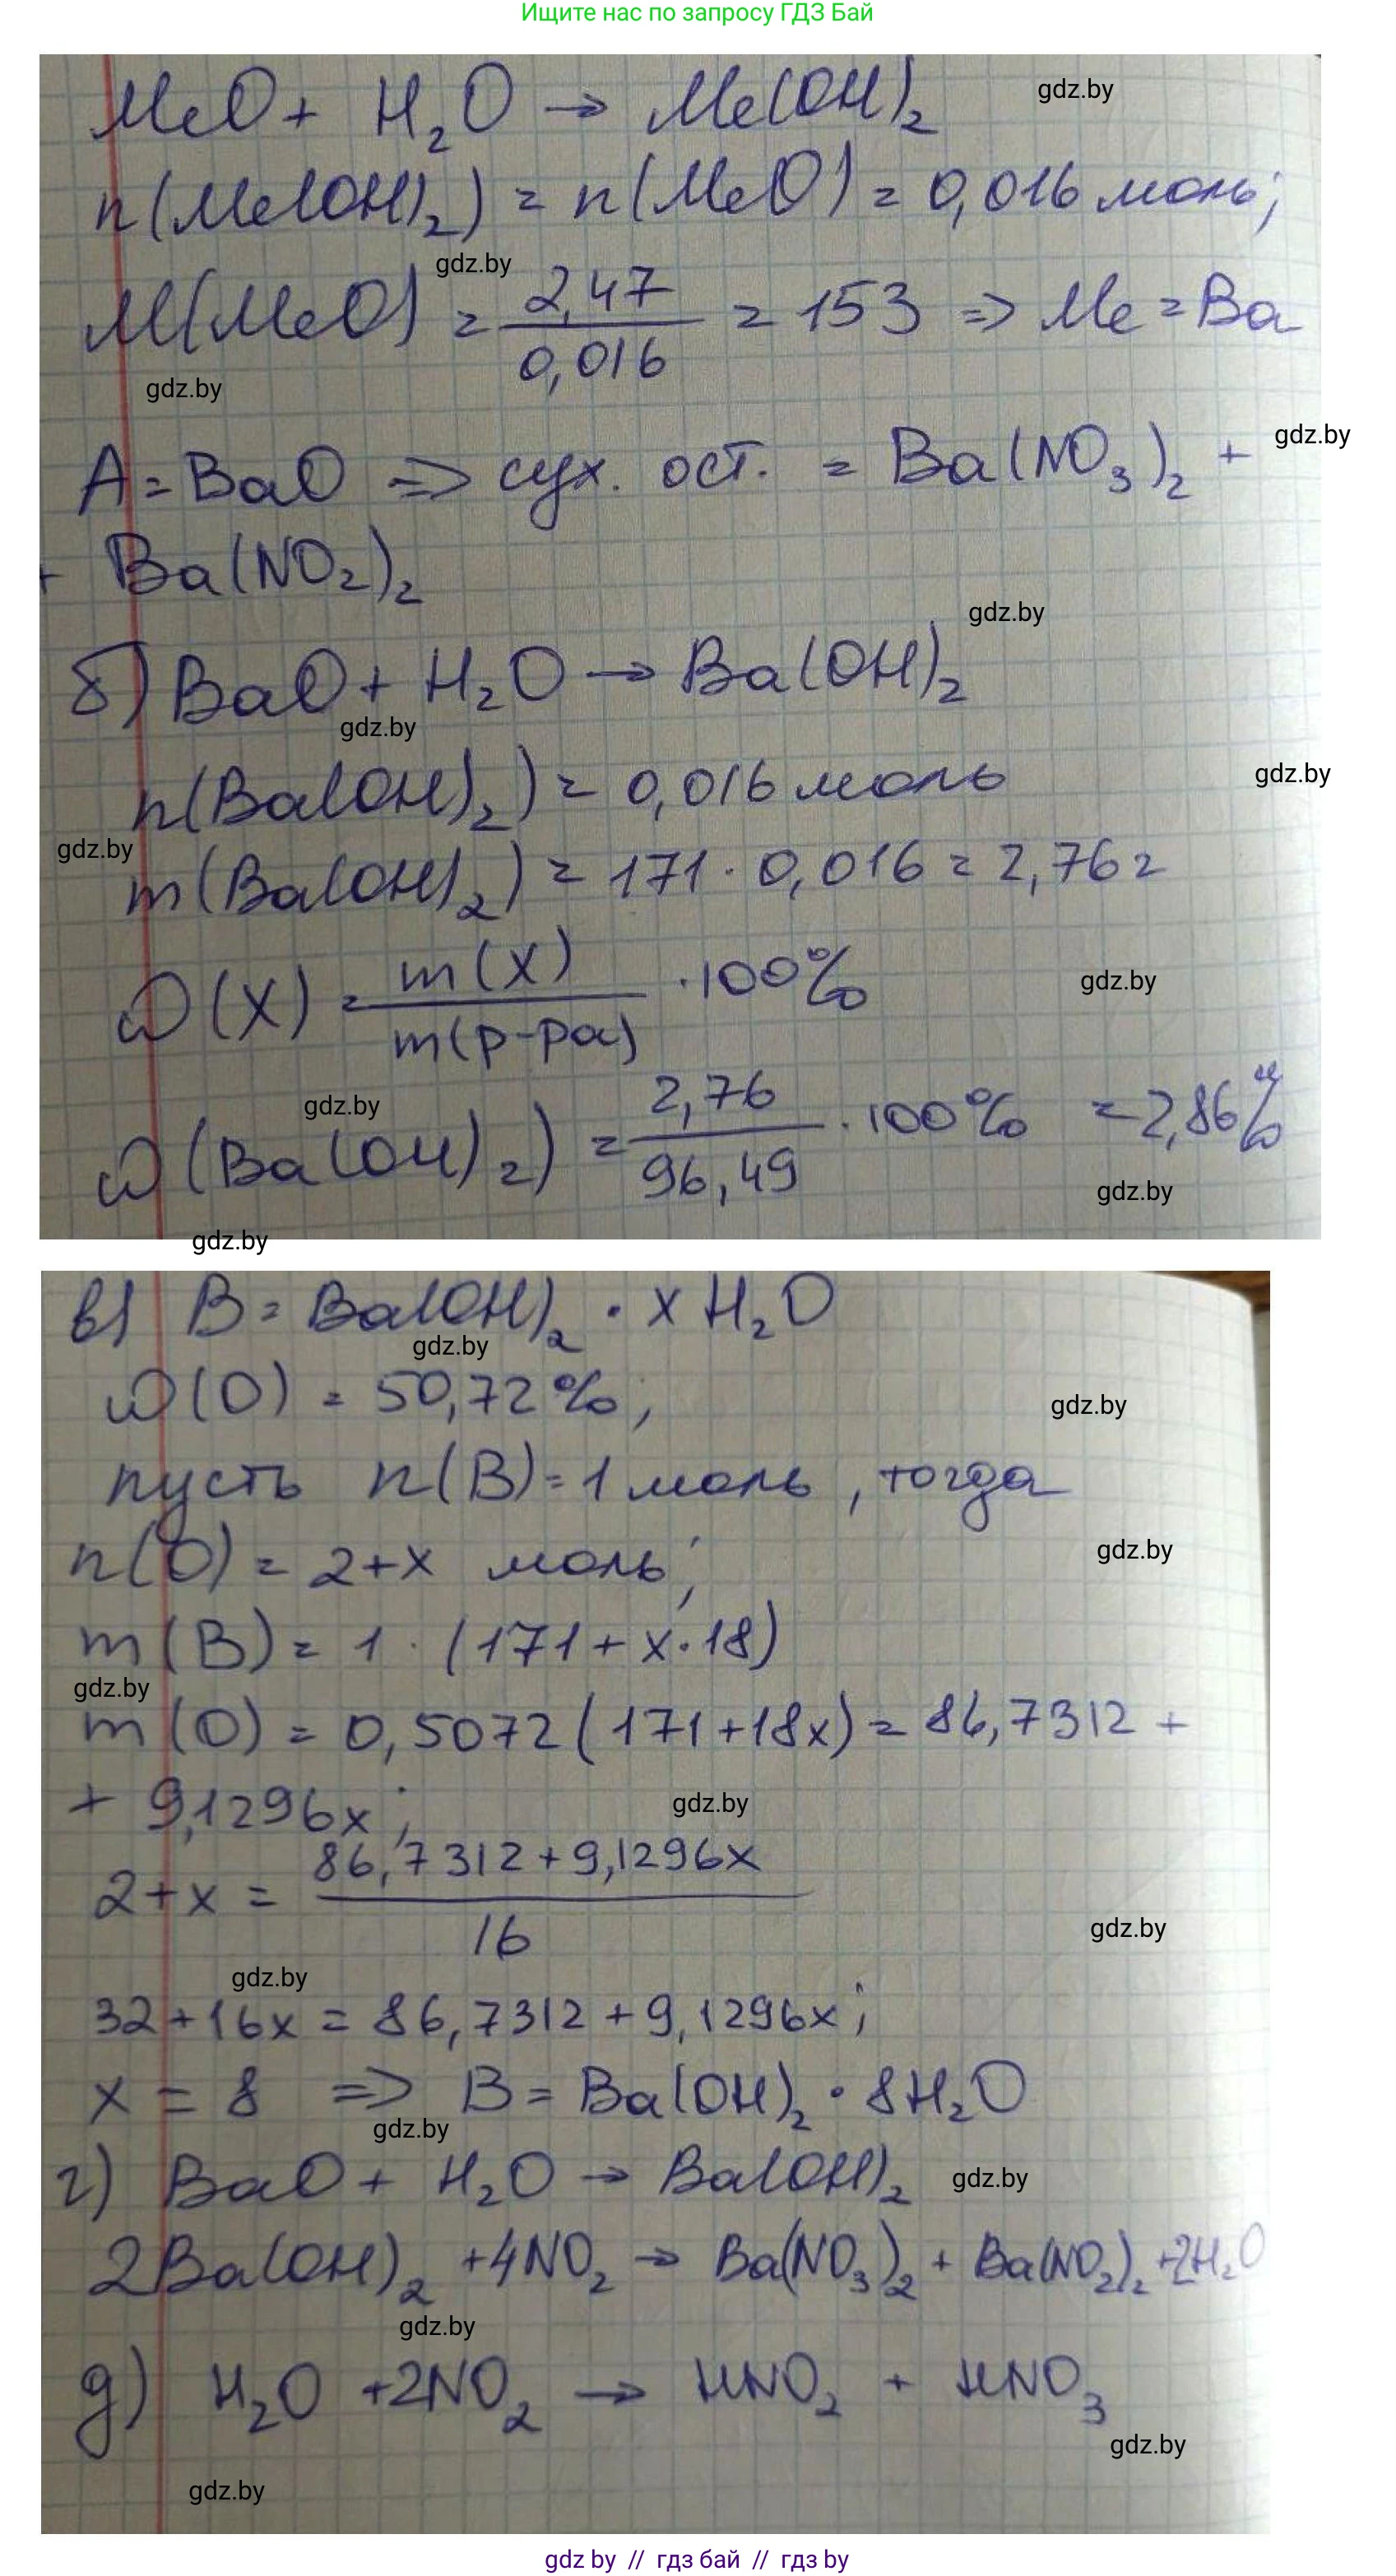 Ищите нас по запросу ГДЗ Бай
MeO + H₂O → Me(OH)₂
gdz.by
n(Me(OH)₂) = n(MeO) = 0,016 моль;
gdz.by
M(MeO) = 2,47 / 0,016 = 153 => Me = Ba
gdz.by
gdz.by
A = BaO => сух. ост. = Ba(NO₃)₂ +
+ Ba(NO₂)₂
gdz.by
б) BaO + H₂O → Ba(OH)₂
gdz.by
n(Ba(OH)₂) = 0,016 моль
gdz.by
gdz.by
m(Ba(OH)₂) = 171 · 0,016 = 2,76 г
ω(X) = m(X) / m(р-ра) · 100%
gdz.by
gdz.by
ω(Ba(OH)₂) = 2,76 / 96,49 · 100% = 2,86%
gdz.by
gdz.by
в) B = Ba(OH)₂ · x H₂O
gdz.by
ω(O) = 50,72%;
gdz.by
пусть n(B) = 1 моль, тогда
n(O) = 2+x моль;
gdz.by
m(B) = 1 · (171 + x·18)
gdz.by
m(O) = 0,5072(171+18x) = 86,7312 +
+ 9,1296x;
gdz.by
2+x = 86,7312+9,1296x / 16
gdz.by
gdz.by
32+16x = 86,7312+9,1296x;
x = 8 => B = Ba(OH)₂ · 8H₂O
gdz.by
г) BaO + H₂O → Ba(OH)₂
gdz.by
2Ba(OH)₂ +4NO₂ → Ba(NO₃)₂ + Ba(NO₂)₂ +2H₂O
gdz.by
д) H₂O +2NO₂ → HNO₂ + HNO₃
gdz.by
gdz.by
gdz by // гдз бай // гдз by